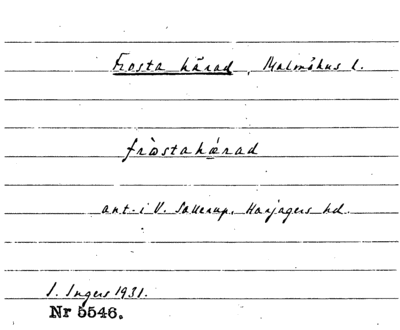 Frosta härad, Malmöhus l.
fròstahǽrad
ant. i V. Sallerup, Harjagers hd.
I. Ingers 1931.
Nr 5546.